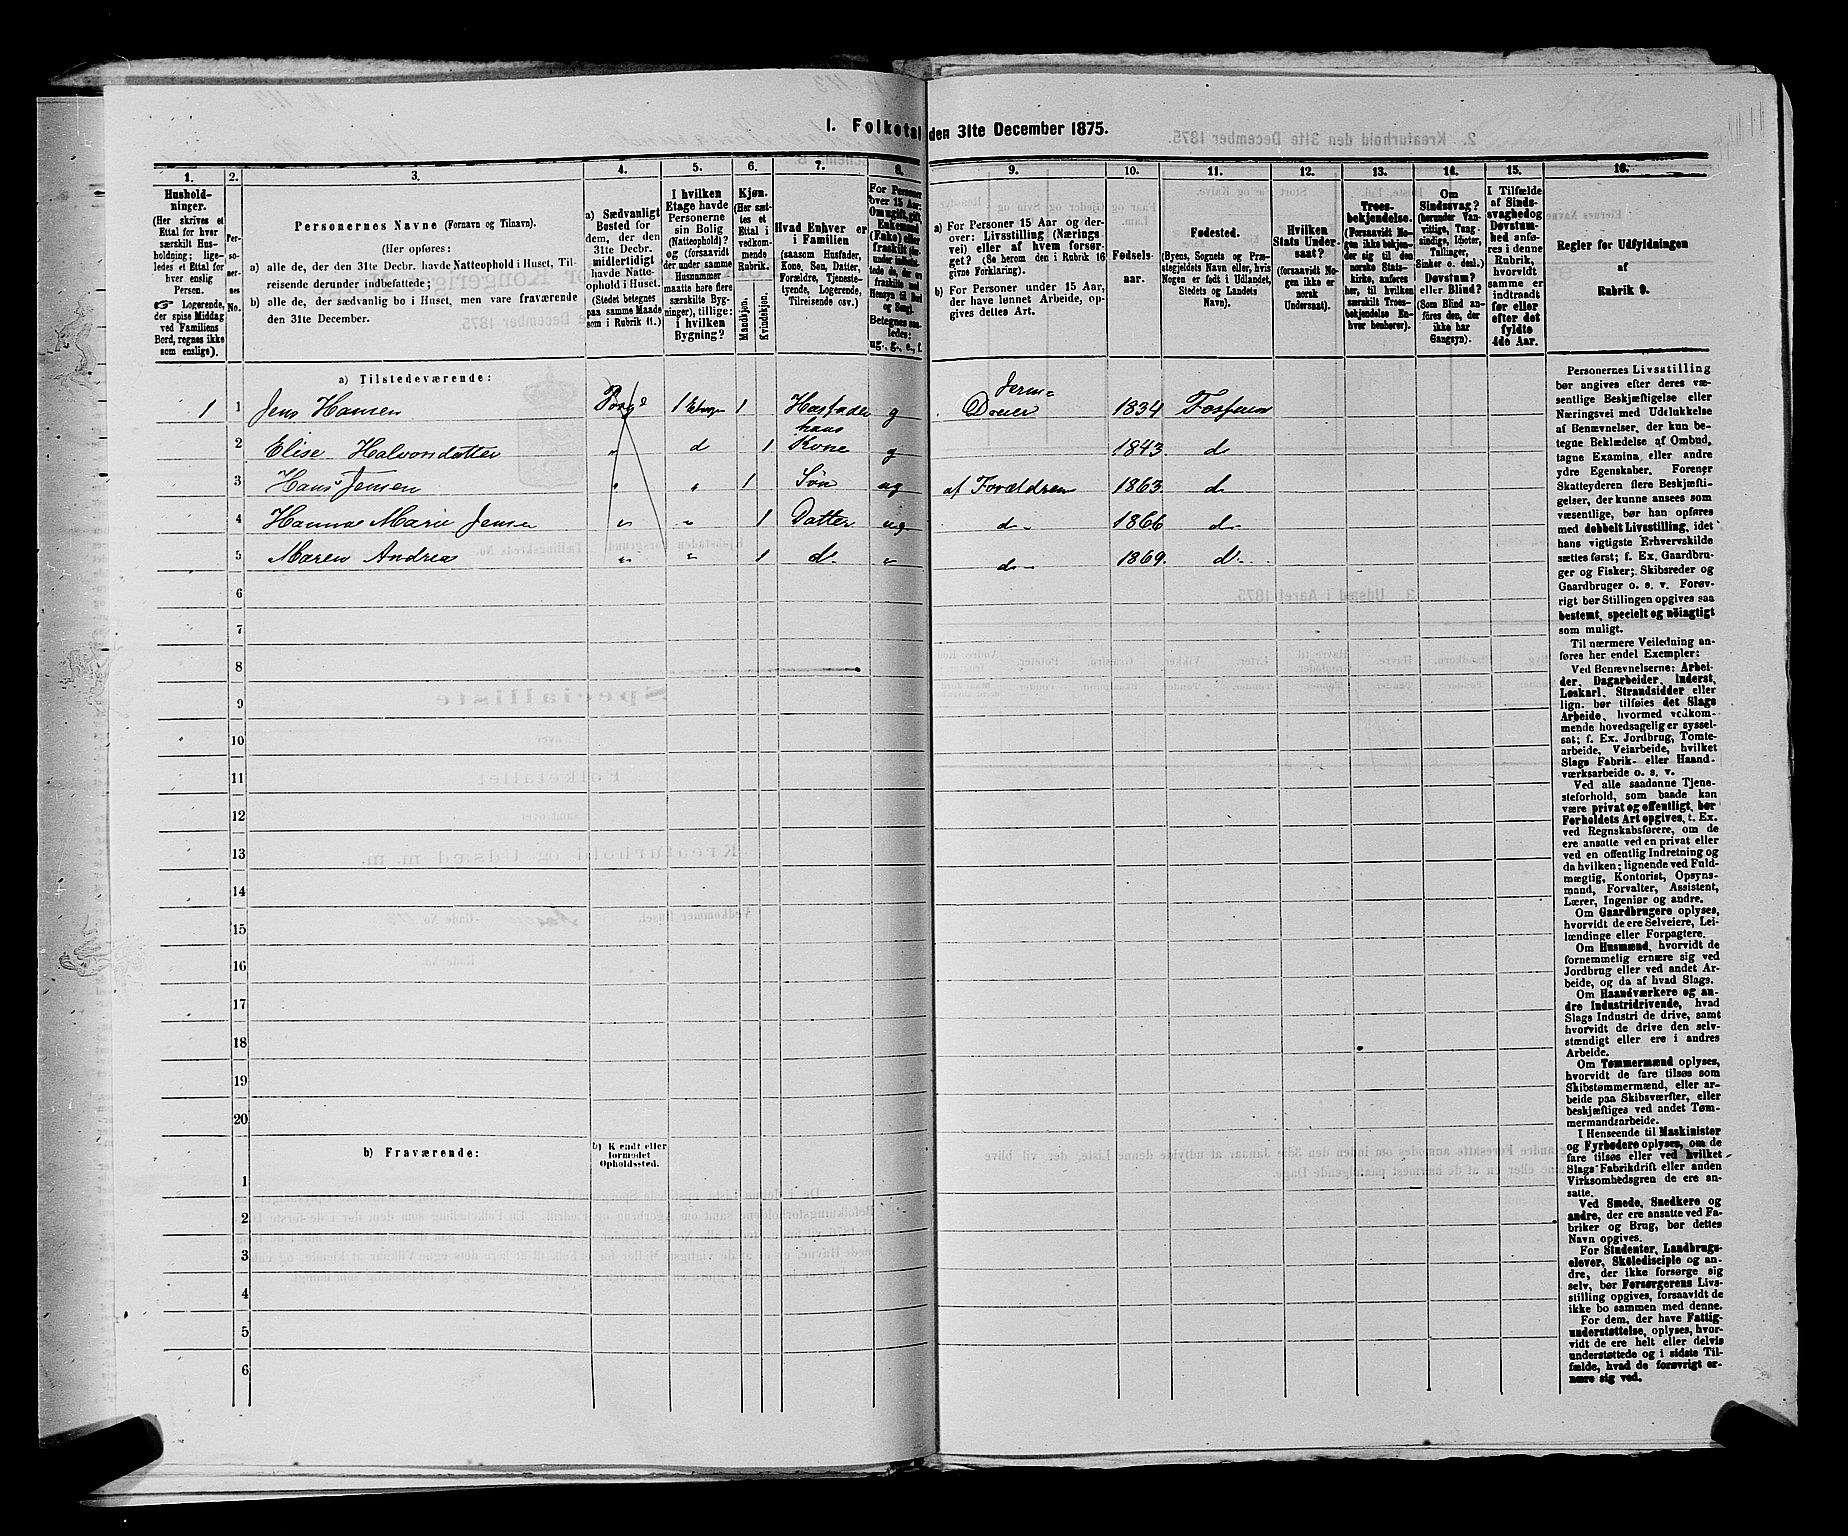 I. Folketal den 31te December 1875.
1.
Husholdninger.
(Her skrives et
Ettal for hver
særskilt Husholdning; ligeledes
et Ettal for
hver enslig
Person.
☞ Logerende,
der spise Middag
ved Familiens
Bord, regnes ikke
som enslige).
2.
Personernes
No.
3.
Personernes Navne (Fornavn og Tilnavn).
(Her opføres:
a) alle de, der den 31te Decbr. havde Natteophold i Huset, Tilreisende derunder indbefattede;
b) alle de, der sædvanlig bo i Huset, men vare fraværende
den 31te December.
4.
a) Sædvanligt
Bosted for
dem, der den
31te Decbr.
midlertidigt
havde Natteophold i Huset.
(Stedet betegnes
paa samme Maade
som i Rubrik 11.)
5.
I hvilken
Etage havde
Personerne
sin Bolig
(Natteophold)?
og (forsaavidt
der under samme
Husnummer
maatte høre flere
særskilte Bygninger), tillige:
i hvilken
Bygning?
6.
Kjøn.
(Her sættes et
Ettal i
vedkommende
Rubrik.
Mandskjøn.
Kvindekjøn.
7.
Hvad Enhver er
i Familien
(saasom Husfader,
Kone, Søn, Datter,
Forældre, Tjenestetyende, Logerende,
Tilreisende osv.)
8.
For Personer
over 15 Aar:
Om ugift, gift,
Enkemand
(Enke) eller
fraskilt
Betegnes saaledes:
ug., g., e., f.
9.
a) For Personer 15 Aar og derover: Livsstilling (Næringsvei) eller af hvem forsørget? (Se herom den i Rubrik 16
givne Forklaring).
b) For Personer under 15 Aar,
der have lønnet Arbeide, opgives dettes Art.
10.
Fødselsaar.
11.
Fødested.
(Byens, Sognets og Præstegjeldets Navn eller, hvis
Nogen er født i Udlandet,
Stedets og Landets
Navn).
12.
Hvilken
Stats Undersaat?
(forsaavidt Nogen ikke er
norsk
Undersaat).
13.
Troesbekjendelse.
(Forsaavidt Nogen ikke bekjender sig til den
norske Statskirke, anføres
her, til hvilken
særskilt Troesbekjendelse Enhver henhører).
14.
Om
Sindssvag?
(herunder Vanvittige, Tungsindige, Idioter,
Tullinger,
Sinker o. desl.)
Døvstum?
eller Blind?
(Som Blind anføres den, der
ikke har
Gangsyn).
15.
I Tilfælde
af Sindssvaghed og
Døvstumhed anføres i denne
Rubrik,
hvorvidt
samme er
indtraadt
før eller
efter det
fyldte
4de Aar.
16.
Regler for Udfyldningen
af
Rubrik 9.
a) Tilstedeværende:
1 1 Jens Hansen 1 Etage 1 Husfader g Dreier 1834 Fossum
2 Elise Halvorsdatter " d 1 hans Kone g 1843 d
3 Hans Jensen " " 1 Søn ug af Forældren 1863 d
4 Hanna Marie Jensen " " 1 Datter ug d 1866 d
5 Maren Andrea " " 1 d " d 1869. d
6
7
8
9
10
11
12
13
14
15
16
17
18
19
20
b) Fraværende:
b) Kjendt eller
formodet
Opholdssted.
1
2
3
4
5
6
Personernes Livsstilling
bør angives efter deres væsentlige Beskjæftigelse eller
Næringsvei med Udelukkelse
af Benævnelser, der kun betegne Beklædelse af Ombud,
tagne Examina eller andre
ydre Egenskaber. Forener
Skatteyderen flere Beskjæftigelser, der kunne ansees som
væsentlige, bør han opføres
med dobbelt Livsstilling, idet
hans vigtigste Erhvervskilde
sættes først; f. Ex. Gaardbruger og Fisker; Skibsreder og
Gaardbruger o. s. v. Forøvrigt bør Stillingen opgives saa
bestemt, specielt og nøiagtigt
som muligt.
Til nærmere Veiledning anføres her endel Exempler:
Ved Benævnelserne: Arbeider, Dagarbeider, Inderst,
Løskarl, Strandsidder eller
lign. bør tilføies det Slags
Arbeide, hvormed vedkommende hovedsagelig er sysselsat; f. Ex. Jordbrug, Tomtearbeide, Veiarbeide, hvilket
Slags Fabrik- eller Haandværksarbeide o. s. v.
Ved alle saadanne Tjenesteforhold, som baade kan
være privat og offentligt, bør
Forholdets Art opgives, f. Ex.
ved Regnskabsførere, om de
ere ansatte ved en privat eller
ved en offentlig Indretning og
da hvilken; lignende ved Fuldmægtig, Kontorist, Opsynsmand, Forvalter, Assistent,
Lærer, Ingeniør og andre.
Om Gaardbrugere oplyses,
hvorvidt de ere Selveiere, Leilændinge eller Forpagtere.
Om Husmænd, hvorvidt de
fornemmelig ernære sig ved
Jordbrug eller ved andet Arbeide, og da af hvad Slags.
Om Haandværkere og andre Industridrivende, hvad
Slags Industri de drive, samt
hvorvidt de drive den selvstændigt eller ere i andres
Arbeide.
Om Tømmermænd oplyses,
hvorvidt de fare tilsøs som
Skibstømmermænd, eller arbeide paa Skibsværfter, eller
beskjæftiges ved andet Tømmermandsarbeide.
I Henseende til Maskinister
og Fyrbødere oplyses, om de
fare tilsøs eller ved hvilket
Slags Fabrikdrift eller anden
Virksomhedsgren de ere ansatte.
Ved Smede, Snedkere og
andre, der ere ansatte ved Fabriker og Brug, bør dettes
Navn opgives.
For Studenter, Landbrugselever, Skoledisciple og andre, der ikke forsørge sig
selv, bør Forsørgerens Livsstilling opgives, forsaavidt de
ikke bo sammen med denne.
For dem, der have Fattigunderstøttelse, oplyses, hvorvidt de ere helt eller delvis
understøttede og i sidste Tilfælde, hvad de forøvrigt ernære sig ved.